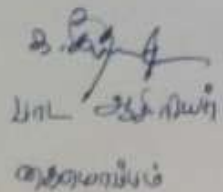 பாட ஆசிரியர்
கையொப்பம்